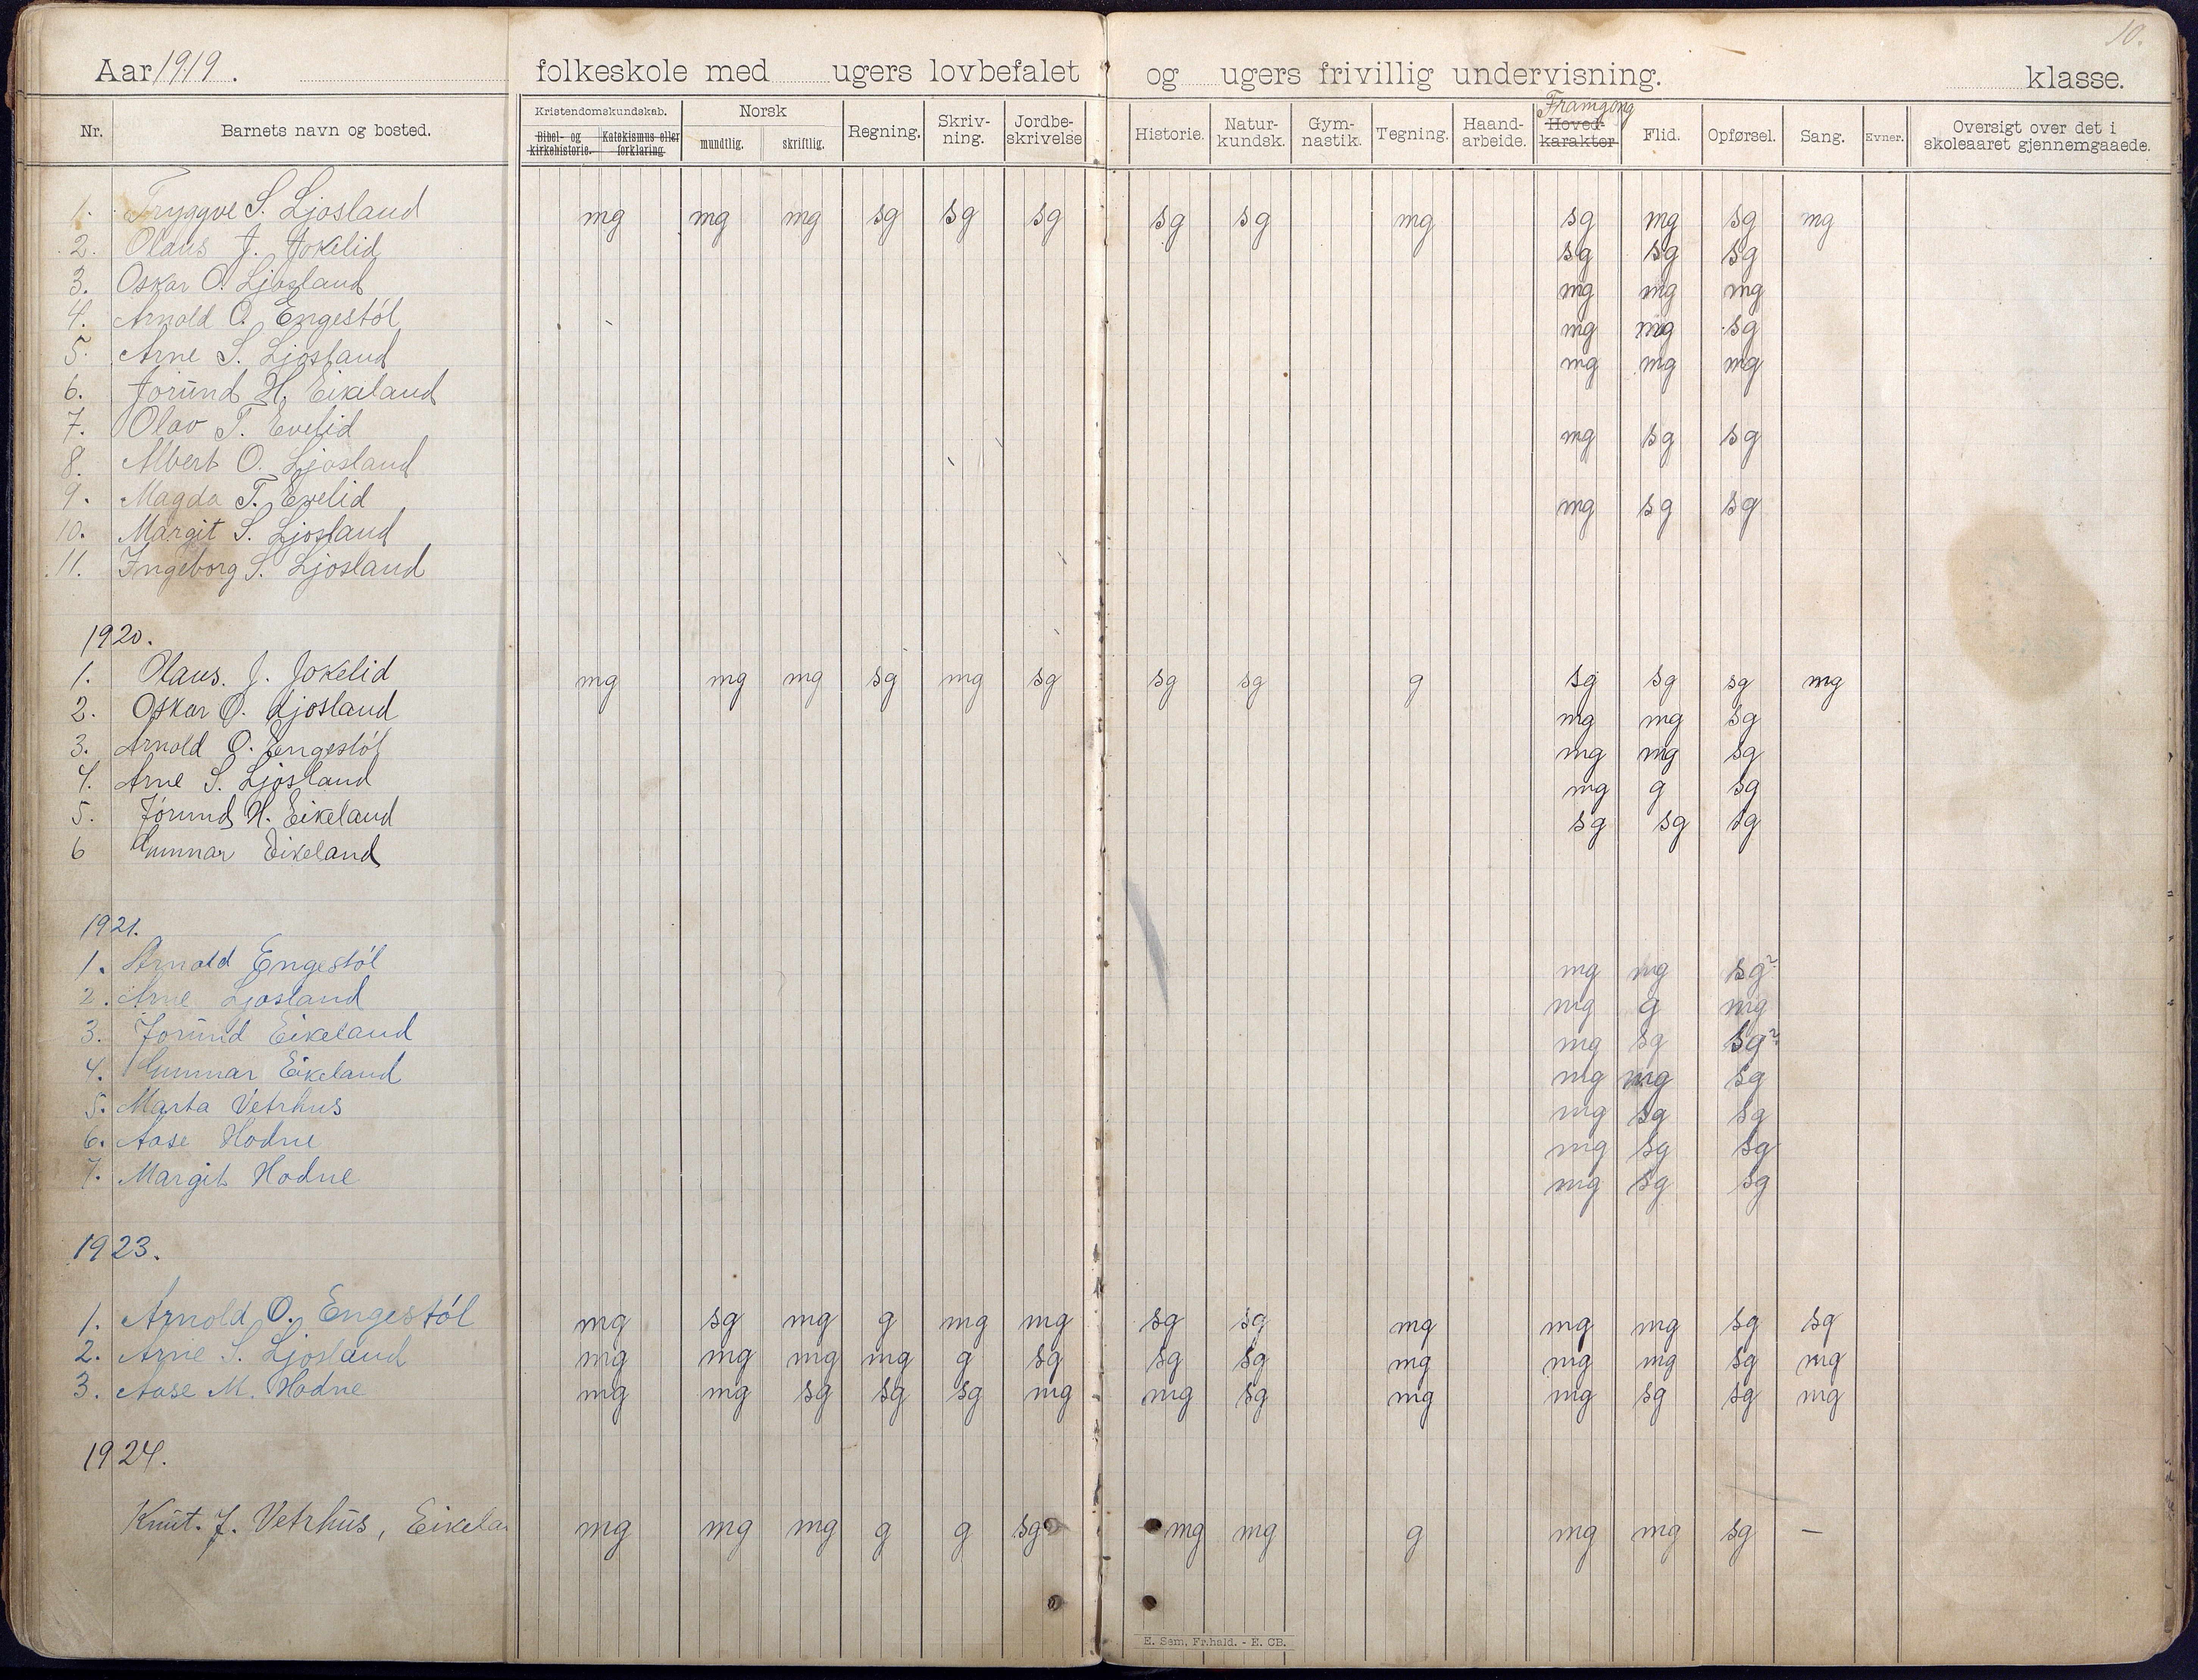 10.
Aar 1919. folkeskole med ugers lovbefalet og ugers frivillig undervisning. klasse.
Nr. Barnets navn og bosted. Kristendomskundskab. Bibel- og kirkehistorie. Katekismus eller forklaring. Norsk mundtlig. skriftlig. Regning. Skriv-ning. Jordbe-skrivelse Historie. Natur-kundsk. Gym-nastik. Tegning. Haand-arbeide. Framgong Hoved-karakter Flid. Opførsel. Sang. Evner. Oversigt over det i skoleaaret gjennemgaaede.
1. Tryggve S. Ljosland mg mg mg sg sg sg sg sg mg sg mg sg mg
2. Olaus J. Jokelid sg sg sg
3. Oskar O. Ljosland mg mg mg
4. Arnold O. Engestøl mg mg sg
5. Arne S. Ljosland mg mg mg
6. Jorŭnd H. Eikeland
7. Olav T. Evelid mg sg sg
8. Albert O. Ljosland
9. Magda T. Evelid mg sg sg
10. Margit S. Ljosland
11. Ingeborg S. Ljosland
1920.
1. Olaus. J. Jokelid mg mg mg sg mg sg sg sg g sg sg sg mg
2. Oskar O. Ljosland mg mg sg
3. Arnold O. Engestøl mg mg sg
4. Arne S. Ljosland mg g sg
5. Jórund H. Eikeland sg sg sg
6 Gunnar Eikeland
1921.
1. Arnold Engestól mg mg sg?
2. Arne Ljosland mg g mg
3. Jorŭnd Eikeland mg sg sg?
4. Gunnar Eikeland mg mg sg
5. Marta Vetrhus mg sg sg
6. Aase Hodne mg sg sg
7. Margit Hodne mg sg sg
1923.
1. Arnold O. Engestól mg sg mg g mg mg sg sg mg mg mg sg sg
2. Arne S. Ljosland mg mg mg mg g sg sg sg mg mg mg sg mg
3. Aase M. Hodne mg mg sg sg sg mg mg sg mg mg sg sg mg
1924.
Knŭt. J. Vetrhŭs, Eikela mg mg mg g g sg mg mg g mg mg sg —
E. Sem, Fr.hald. - E. CB.